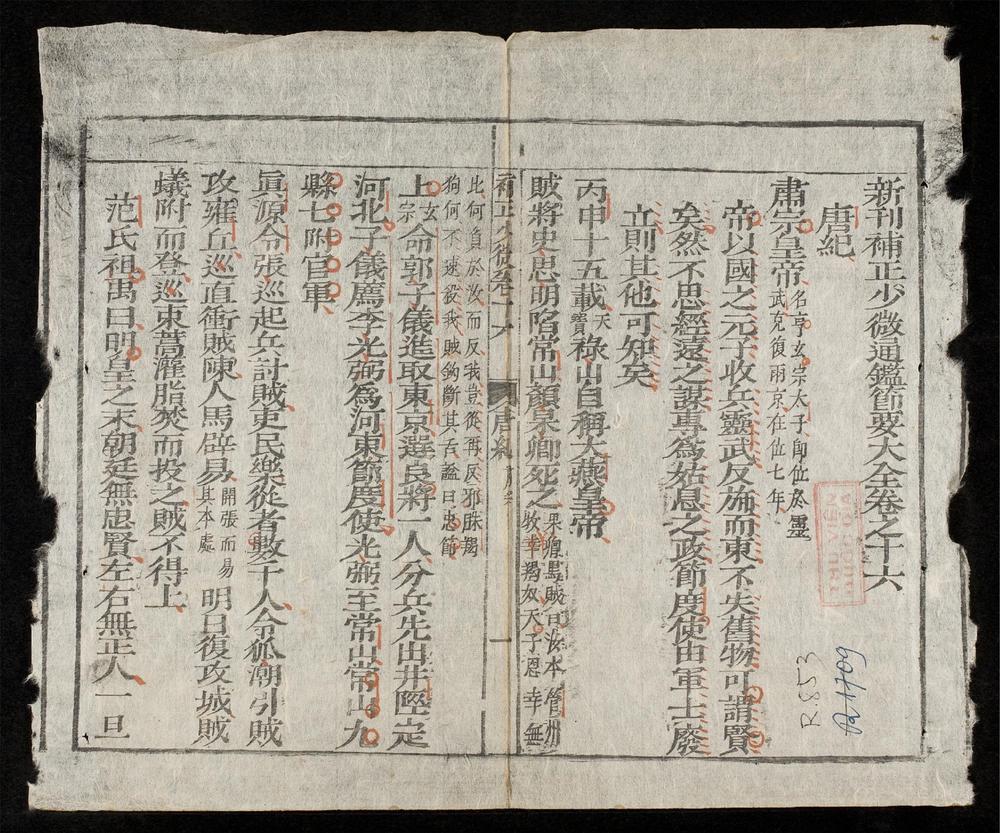 新刊補正少微通鑑節要大全卷之十六
唐紀
肅宗皇帝 名亨玄宗太子即位於靈武克復兩京在位七年
帝以國之元子收兵靈武反斾而東不失舊物可謂賢
矣然不思經遠之謀專爲姑息之政節度使由軍士廢
立則其他可知矣
丙申十五載 天寶 祿山自稱大燕皇帝
賊將史思明陷常山顔杲卿死之 杲卿罵賊曰汝本營州牧羊羯奴天子恩幸無
補正少微卷十六 唐紀 肅宗 一
比何負於汝而反我豈從汝反邪臊羯狗何不速殺我賊鉤斷其舌謚曰忠節
上 玄宗 命郭子儀進取東京選良將一人分兵先出井陘定
河北子儀薦李光弼爲河東節度使光弼至常山常山九
縣七附官軍
眞源令張巡起兵討賊吏民樂從者數千人令狐潮引賊
攻雍丘巡直衝賊陳人馬辟易 開張而易其本處 明日復攻城賊
蟻附而登巡束蒿灌脂焚而投之賊不得上
范氏祖禹曰明皇之末朝廷無忠賢左右無正人一旦
THƯ VIỆN
R.853
A 1709